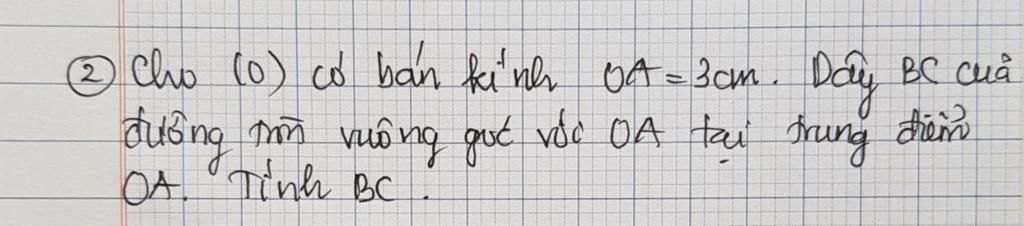 ② Cho (O) có bán kính OA = 3cm. Dây BC của
đường tròn vuông góc với OA tại trung điểm
OA. Tính BC.